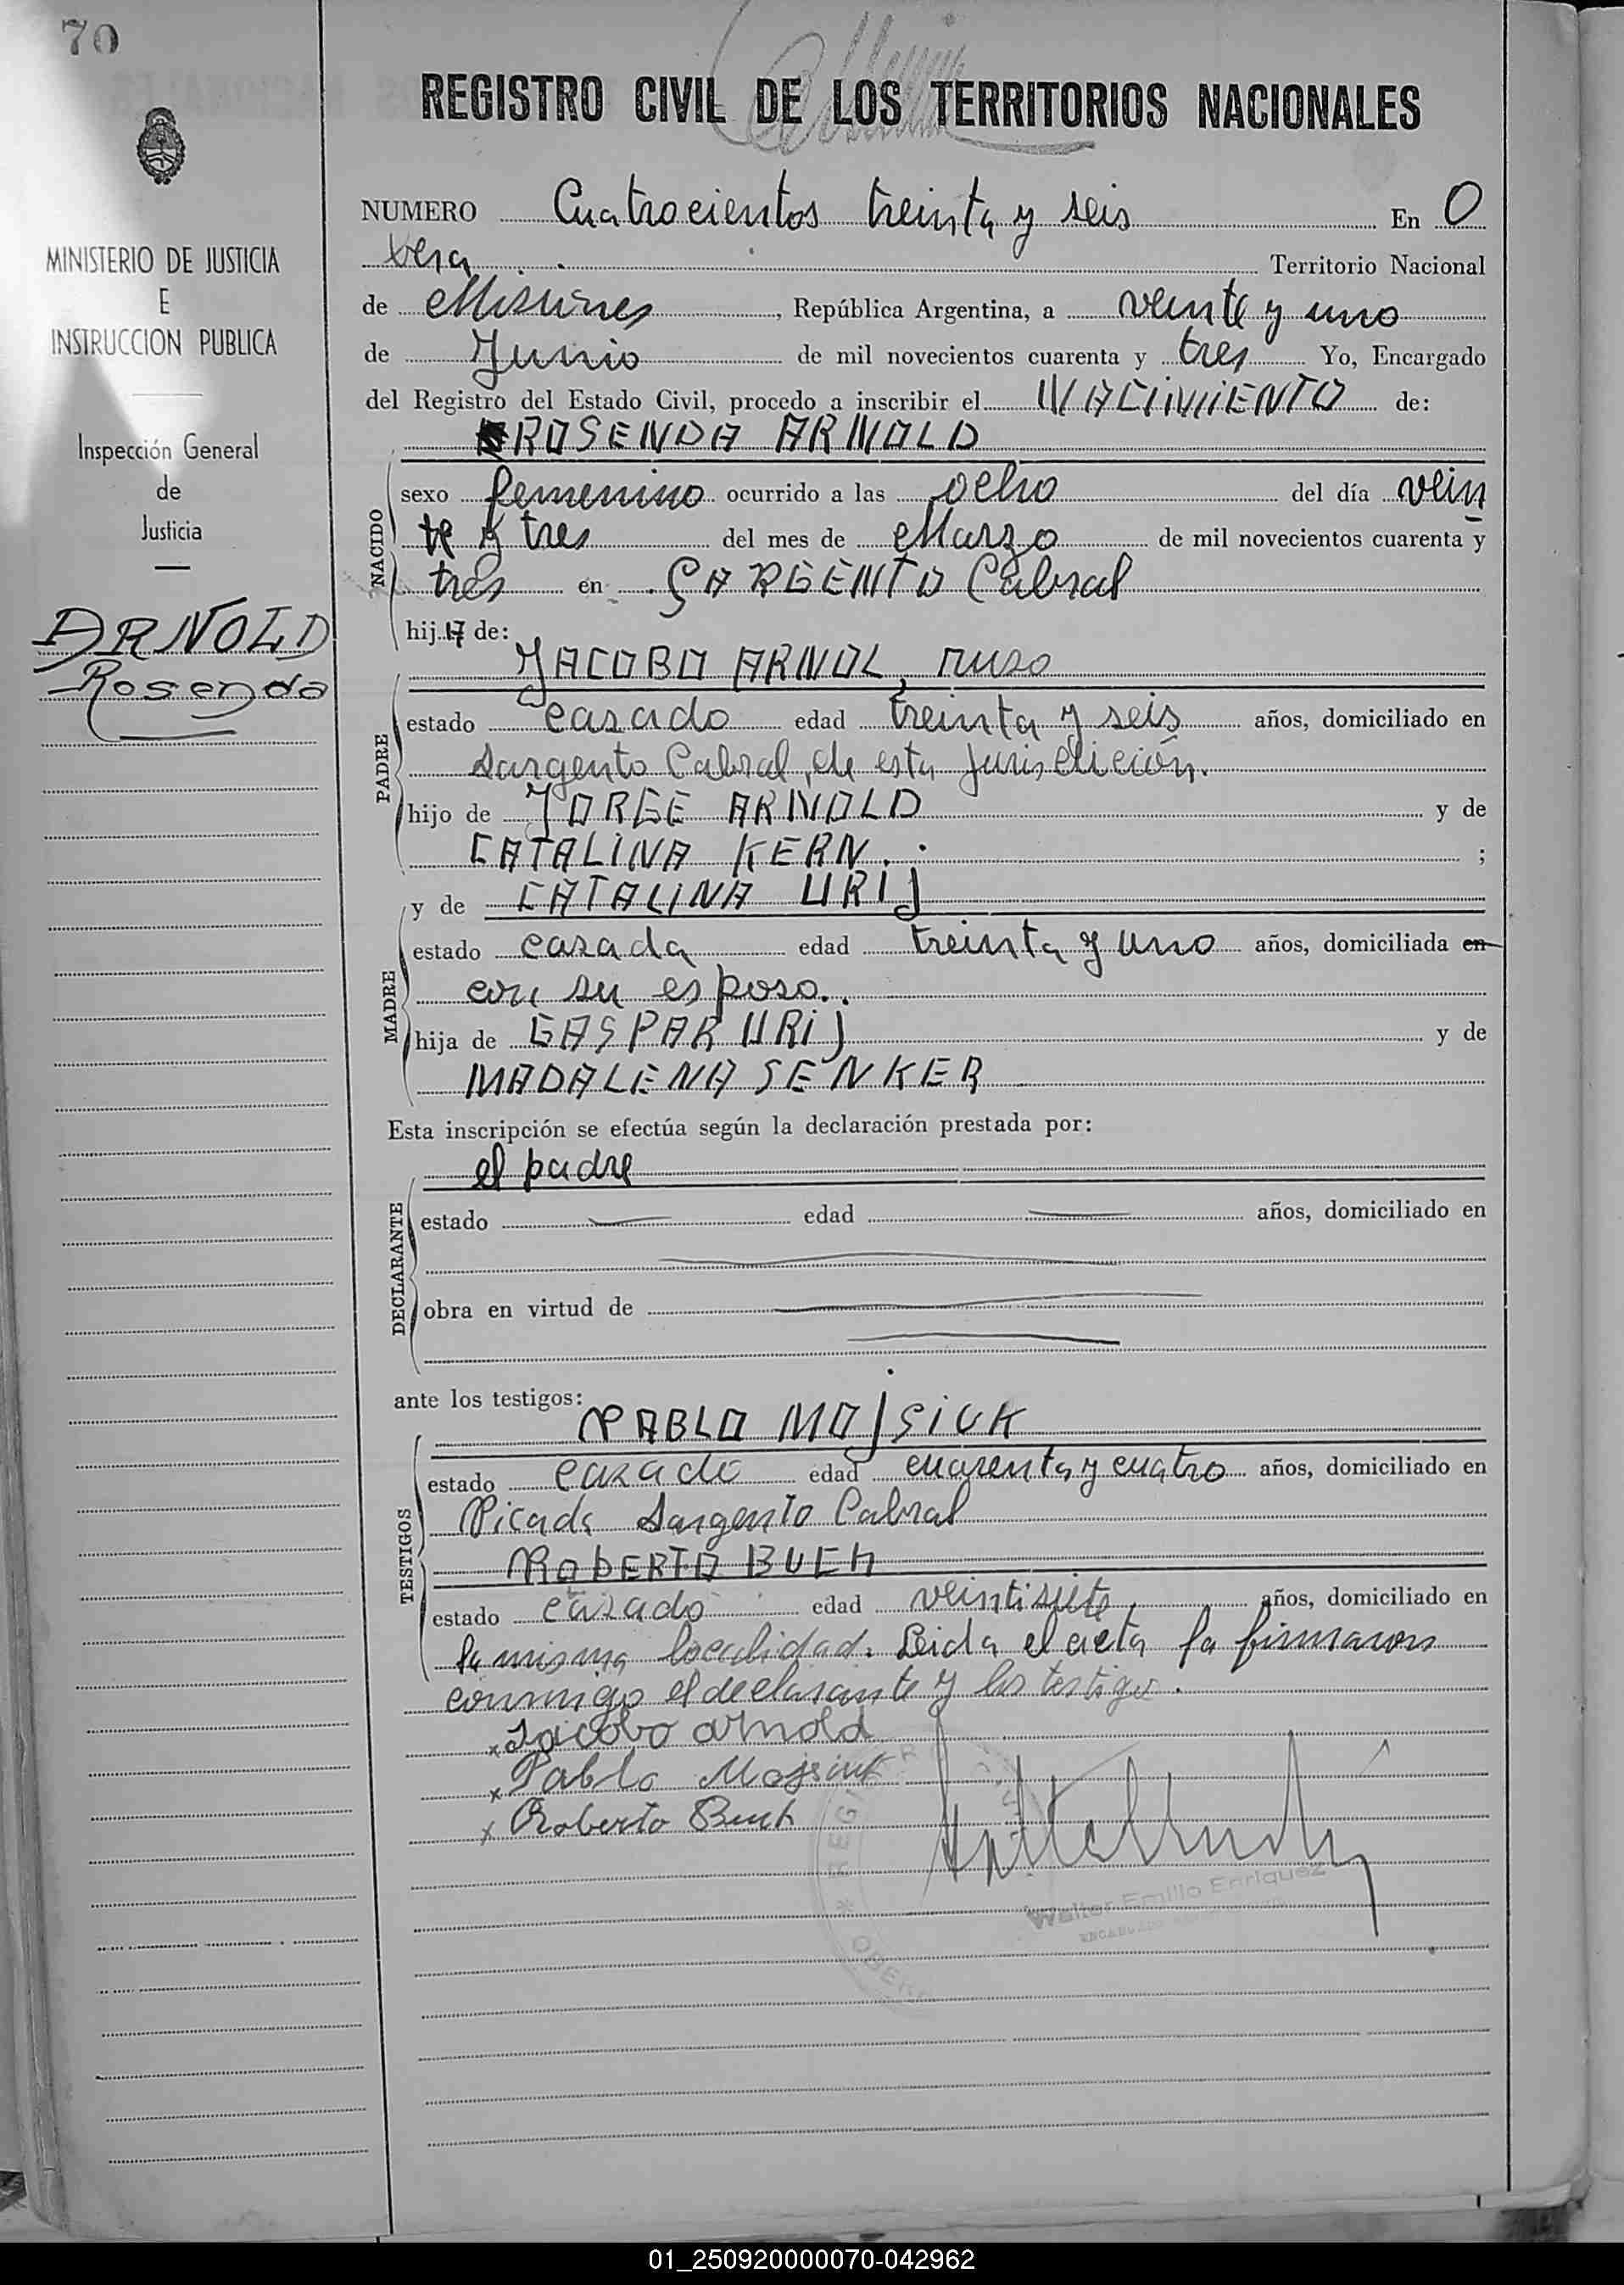 70
MINISTERIO DE JUSTICIA
E
INSTRUCCION PUBLICA
Inspección General
de
Justicia
ARNOLD
Rosenda
REGISTRO CIVIL DE LOS TERRITORIOS NACIONALES
NUMERO Cuatrocientos treinta y seis En O
bera Territorio Nacional
de Misiones, República Argentina, a veinte y uno
de Junio de mil novecientos cuarenta y tres Yo, Encargado
del Registro del Estado Civil, procedo a inscribir el NACIMIENTO de:
ROSENDA ARNOLD
NACIDO
sexo femenino ocurrido a las ocho del día vein
te y tres del mes de Marzo de mil novecientos cuarenta y
tres en SARGENTO Cabral
hija de:
JACOBO ARNOL, ruso
PADRE
estado casado edad treinta y seis años, domiciliado en
Sargento Cabral, de esta Jurisdición.
hijo de JORGE ARNOLD y de
CATALINA KERN. ;
y de CATALINA URIJ
MADRE
estado casada edad treinta y uno años, domiciliada en
con su esposo.
hija de GASPAR URIJ y de
MADALENA SENKER
Esta inscripción se efectúa según la declaración prestada por:
el padre
DECLARANTE
estado edad años, domiciliado en
obra en virtud de
ante los testigos:
PABLO MOJSIUK
TESTIGOS
estado casado edad cuarenta y cuatro años, domiciliado en
Picada Sargento Cabral
ROBERTO BUCH
estado casado edad veintisiete años, domiciliado en
la misma localidad. Leida el acta la firmaron
conmigo el declarante y los testigos.
x Jacobo Arnold
x Pablo Mojsiuk
x Roberto Buch
REGI
Walter Emilio Enriquez
01_250920000070-042962